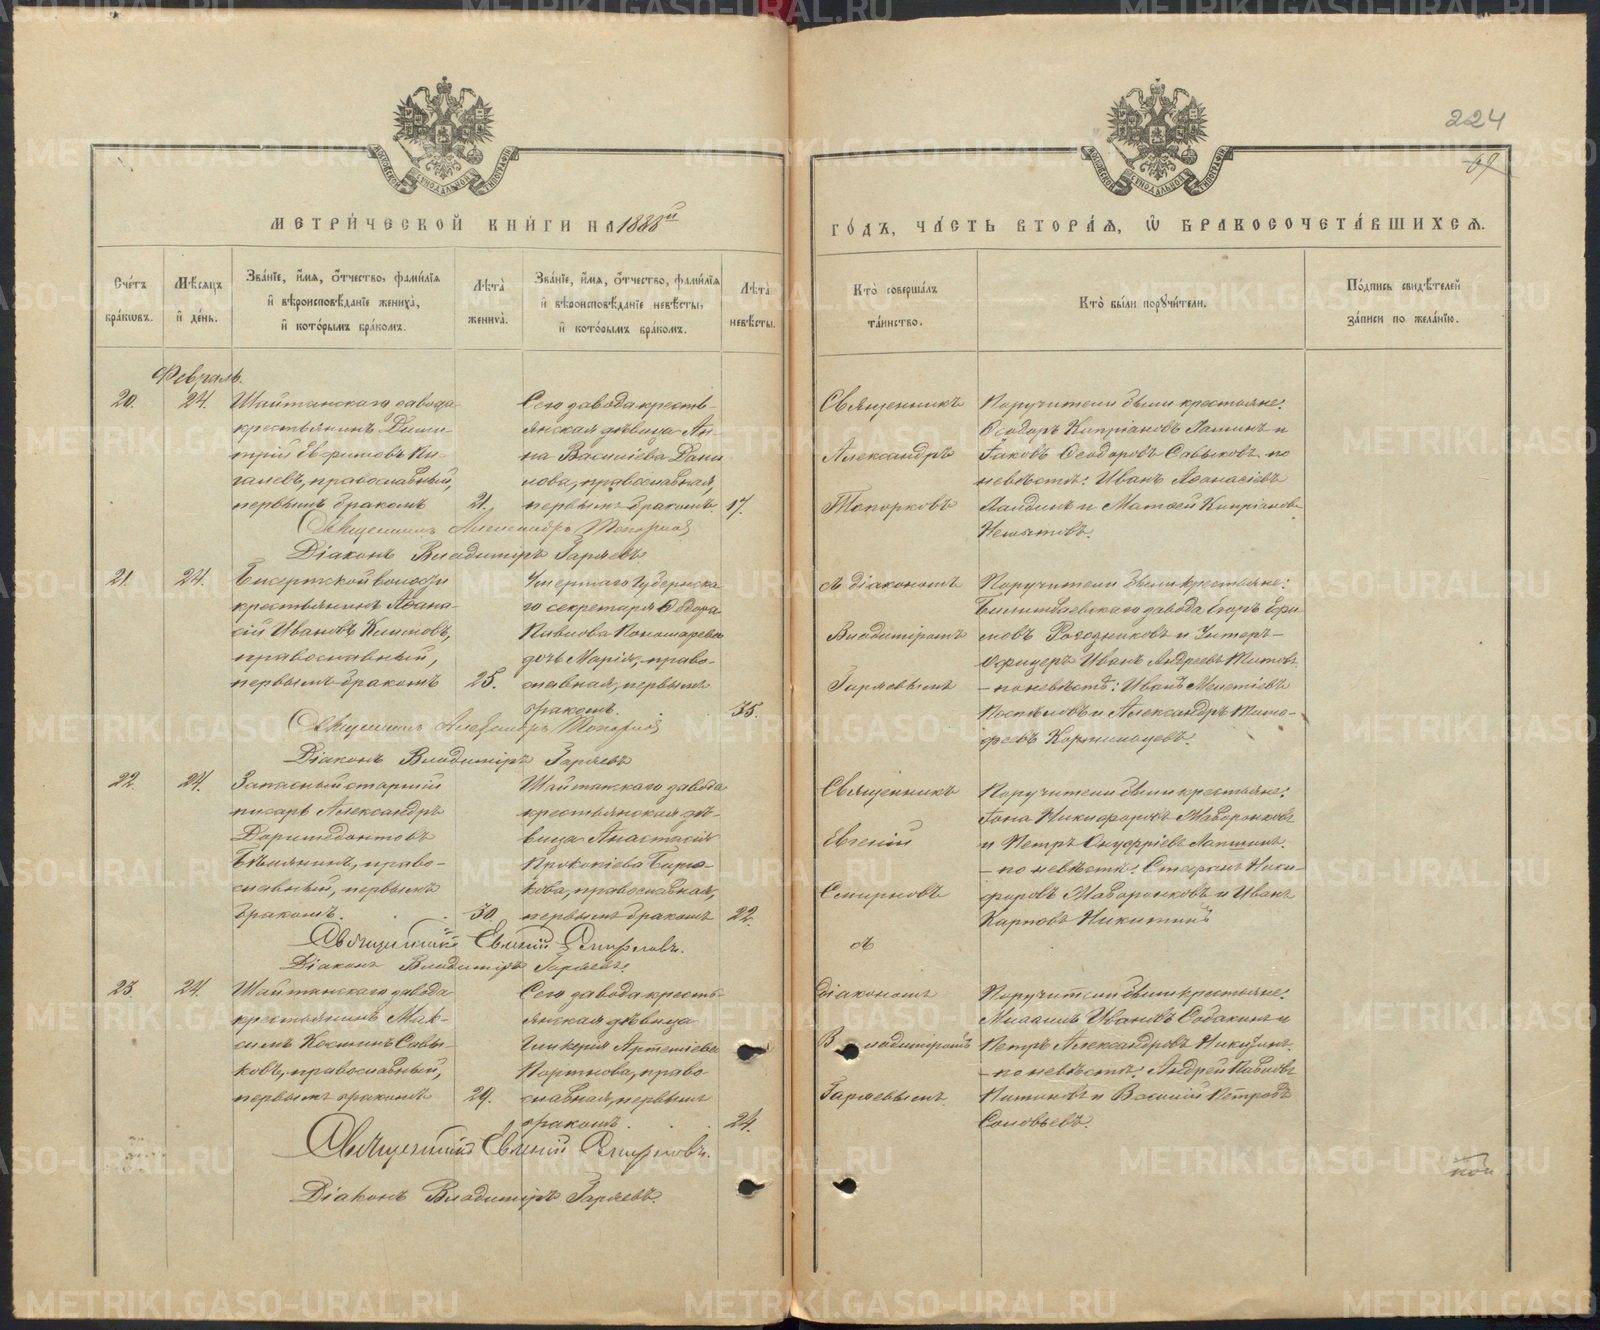 224
69
МЕТРИЧЕСКОЙ КНИГИ НА 1888й
ГОДЪ, ЧАСТЬ ВТОРАЯ, Ѿ БРАКОСОЧЕТАВШИХСЯ.
Счетъ браковъ.
Мѣсяцъ и день.
Званіе, имя, отчество, фамилія и вѣроисповѣданіе жениха, и которымъ бракомъ.
Лѣта жениха.
Званіе, имя, отчество, фамилія и вѣроисповѣданіе невѣсты, и которымъ бракомъ.
Лѣта невѣсты.
Кто совершалъ таинство.
Кто были поручители.
Подпись свидѣтелей записи по желанію.
Февраль.
20.
24.
Шайтанскаго завода
крестьянинъ Дими
трій Ефимовъ
православный,
первымъ бракомъ
21.
Сего завода кресть-
янская дѣвица Ан-
на Василіева Дани
лова, православная,
первымъ бракомъ
17.
Священникъ
Александръ
Топорковъ
Поручители были крестьяне:
Ѳеодоръ Кипріановъ Галинъ и
Іаковъ Ѳеодоровъ Савыковъ, по
невѣстѣ: Иванъ Аѳанасіевъ
и Матѳей Кипріановъ
Священникъ Александръ Топорковъ
Діаконъ Владиміръ Гаряевъ.
21.
24.
Бисертской волости
крестьянинъ Аѳана-
сій Ивановъ Климовъ,
православный,
первымъ бракомъ
25.
Умершаго Губернска
го секретаря Ѳедора
Павлова Пономарева
дочь Марія, право-
славная, первымъ
бракомъ.
35.
съ діакономъ
Владиміромъ
Гаряевымъ
Поручители были крестьяне:
Билимбаевскаго завода Егоръ Ефи
мовъ Рогозниковъ и Унтеръ-
офицеръ Иванъ Андреевъ Титовъ
- по невѣстѣ: Иванъ Мелетіевъ
Поспѣловъ и Александръ Тимо-
феевъ
Священникъ Александръ Топорковъ
Діаконъ Владиміръ Гаряевъ
22.
24.
Запасный старшій
писарь Александръ
Доримедонтовъ
Бѣлянинъ, право-
славный, первымъ
бракомъ.
30.
Шайтанскаго завода
крестьянская дѣ-
вица Анастасія
Прокопіева Бирю-
кова, православная,
первымъ бракомъ
22.
Священникъ
Евгеній
Смирновъ
съ
Поручители были крестьяне:
Іона Никифоровъ Жаворонковъ
и Петръ Онуфріевъ Лапшинъ.
- по невѣстѣ: Ники-
форовъ Жаворонковъ и Иванъ
Карповъ Никитинъ
Священникъ Евгеній Смирновъ.
Діаконъ Владиміръ Гаряевъ.
23.
24.
Шайтанскаго завода
крестьянинъ Мак-
симъ Косминъ Савы-
ковъ, православный,
первымъ бракомъ
29.
Сего завода кресть-
янская дѣвица
Гликерія Артеміева
Портнова, право
славная, первымъ
бракомъ.
24.
Діакономъ
Владиміромъ
Гаряевымъ.
Поручители были крестьяне:
Михаилъ Ивановъ Собакинъ и
Петръ Александровъ Никулинъ.
- по невѣстѣ: Андрей Павловъ
Патиновъ и Василій Петровъ
Соловьевъ.
Священникъ Евгеній Смирновъ.
Діаконъ Владиміръ Гаряевъ.
METRIKI.GASO-URAL.RU